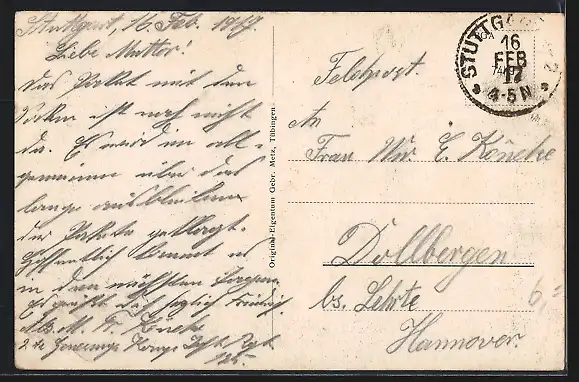 Stuttgart, 16. Feb. 1917
Liebe Mutter!
Das Paket mit den
ist noch nicht
da. Es wird im all-
gemeinen über das
lange ausbleiben
der Pakete geklagt.
Hoffentlich kommt es
in den nächsten Tagen.
Es grüßt dich
Komp. Inft. Regt.
125.
Original-Eigentum Gebr. Metz, Tübingen
STUTTGART
16
FEB
17
4-5N
Feldpost.
An
Frau Ww. E. Köneke
Dollbergen
bs. Lehrte
Hannover.
6,-